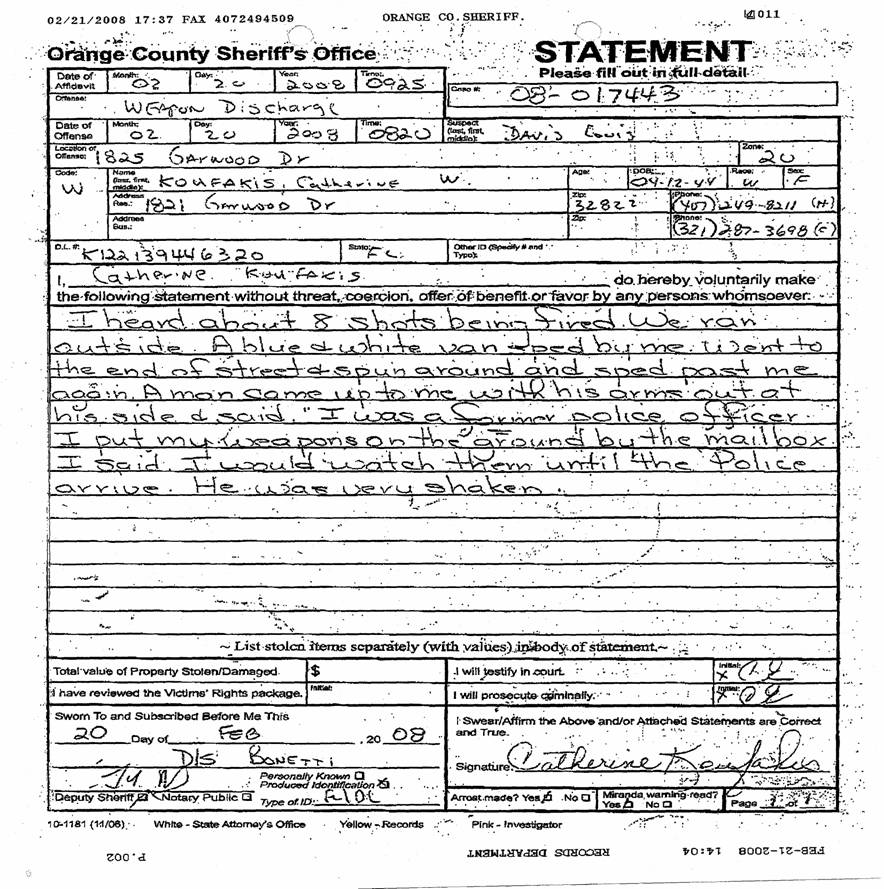 02/21/2008 17:37 FAX 4072494509 ORANGE CO.SHERIFF. 011
Orange County Sheriff's Office STATEMENT
Please fill out in full detail
Date of Affidavit Month: 02 Day: 20 Year: 2008 Time: 0925 Case #: 08-017443
Offense: Weapon Discharge
Date of Offense Month: 02 Day: 20 Year: 2008 Time: 0820 Suspect (last, first, middle): Davis Louis
Location of Offense: 1825 Garwood Dr Zone: 20
Code: W Name (last, first, middle): KOUFAKIS, Catherine W. Age: DOB: 04-12-44 Race: W Sex: F
Address Res.: 1821 Garwood Dr Zip: 32822 Phone: (407) 249-8211 (H)
Address Bus.: Zip: Phone: (321) 287-3698 (C)
D.L. #: K122139446320 State: FL. Other ID (Specify # and Type):
I, Catherine Koufakis do hereby voluntarily make
the following statement without threat, coercion, offer of benefit or favor by any persons whomsoever:
I heard about 8 shots being fired. We ran
outside. A blue & white van sped by me. went to
the end of street & spun around and sped past me
again. A man came up to me with his arms out at
his side & said. "I was a former police officer.
I put my weapons on the ground by the mailbox.
I said I would watch them until the Police
arrive. He was very shaken.
~ List stolen items separately (with values) in body of statement.~
Total value of Property Stolen/Damaged. $ I will testify in court. Initial: X
I have reviewed the Victims' Rights package. Initial: I will prosecute criminally. Initial: X
Sworn To and Subscribed Before Me This I Swear/Affirm the Above and/or Attached Statements are Correct
20 Day of FEB , 20 08 and True.
D/S Bonetti Signature: Catherine Koufakis
Personally Known
Produced Identification
Deputy Sheriff Notary Public Type of ID: FLDL Arrest made? Yes No Miranda warning read? Yes No Page 1 of 1
10-1181 (11/06) White - State Attorney's Office Yellow - Records Pink - Investigator
P.002 RECORDS DEPARTMENT FEB-21-2008 14:04